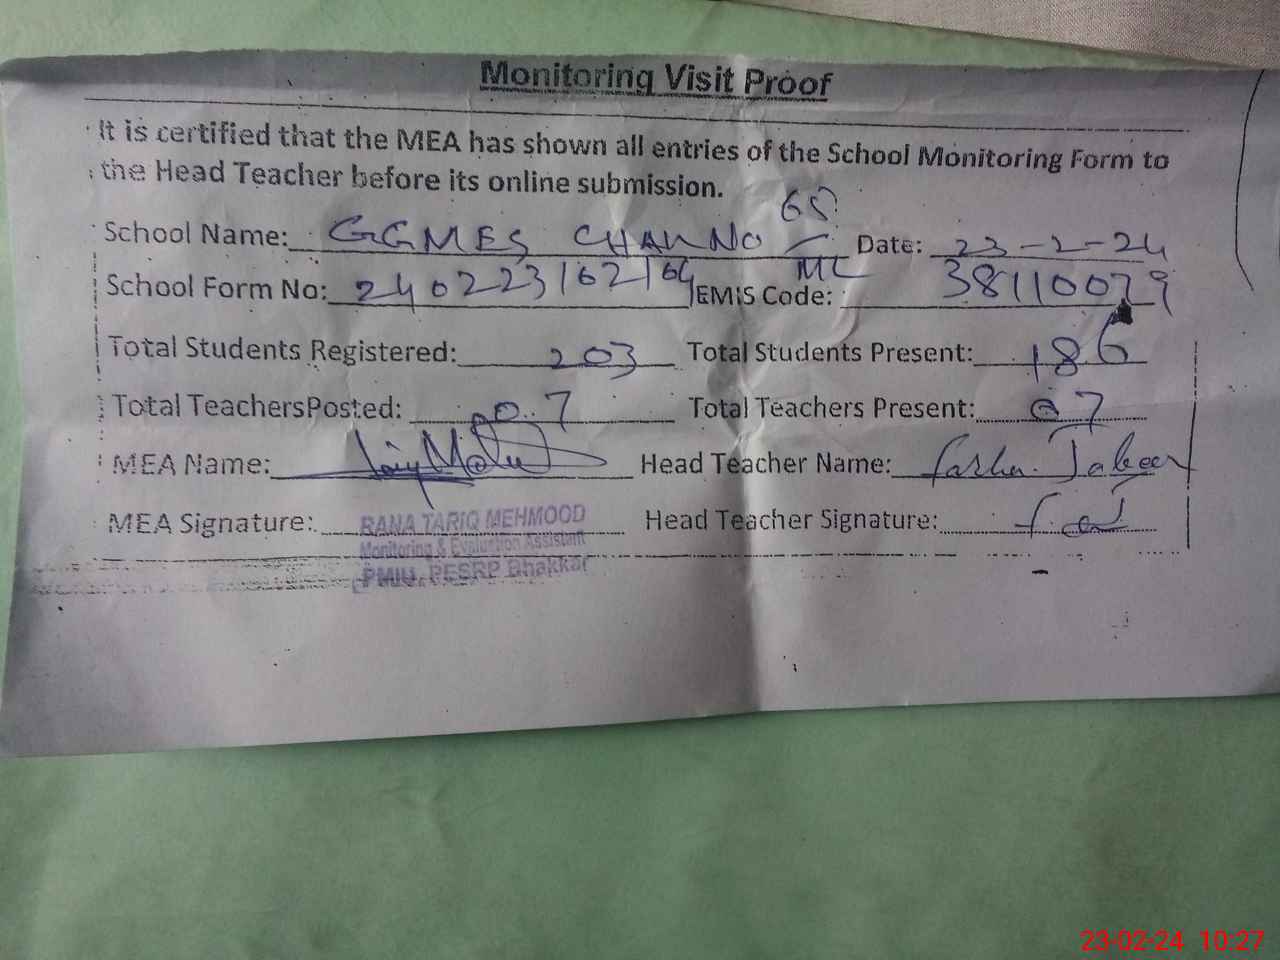 Monitoring Visit Proof
It is certified that the MEA has shown all entries of the School Monitoring Form to
the Head Teacher before its online submission.
School Name: GGMES CHAK NO 68/ML Date: 23-2-24
School Form No: 240223162164 EMIS Code: 38110079
Total Students Registered: 203 Total Students Present: 186
Total TeachersPosted: 07 Total Teachers Present: 07
MEA Name: Head Teacher Name: Jabeen
MEA Signature: RANA TARIQ MEHMOOD Head Teacher Signature:
Monitoring & Evaluation Assistant
PMIU, PESRP Bhakkar
23-02-24 10:27